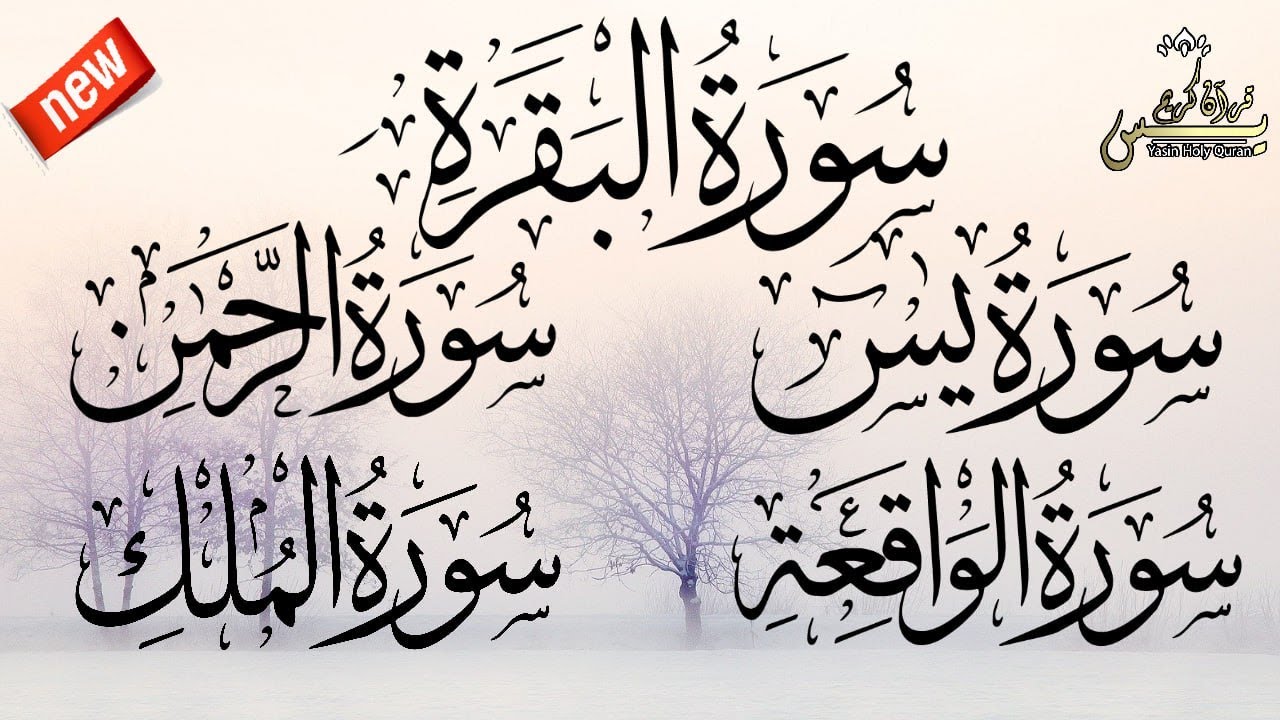 new
قرآن کریم
یس
Yasin Holy Quran
سُورَةُ البَقَرَةِ
سُورَةُ يسٓ
سُورَةُ الرَّحْمَٰنِ
سُورَةُ الوَاقِعَةِ
سُورَةُ المُلْكِ